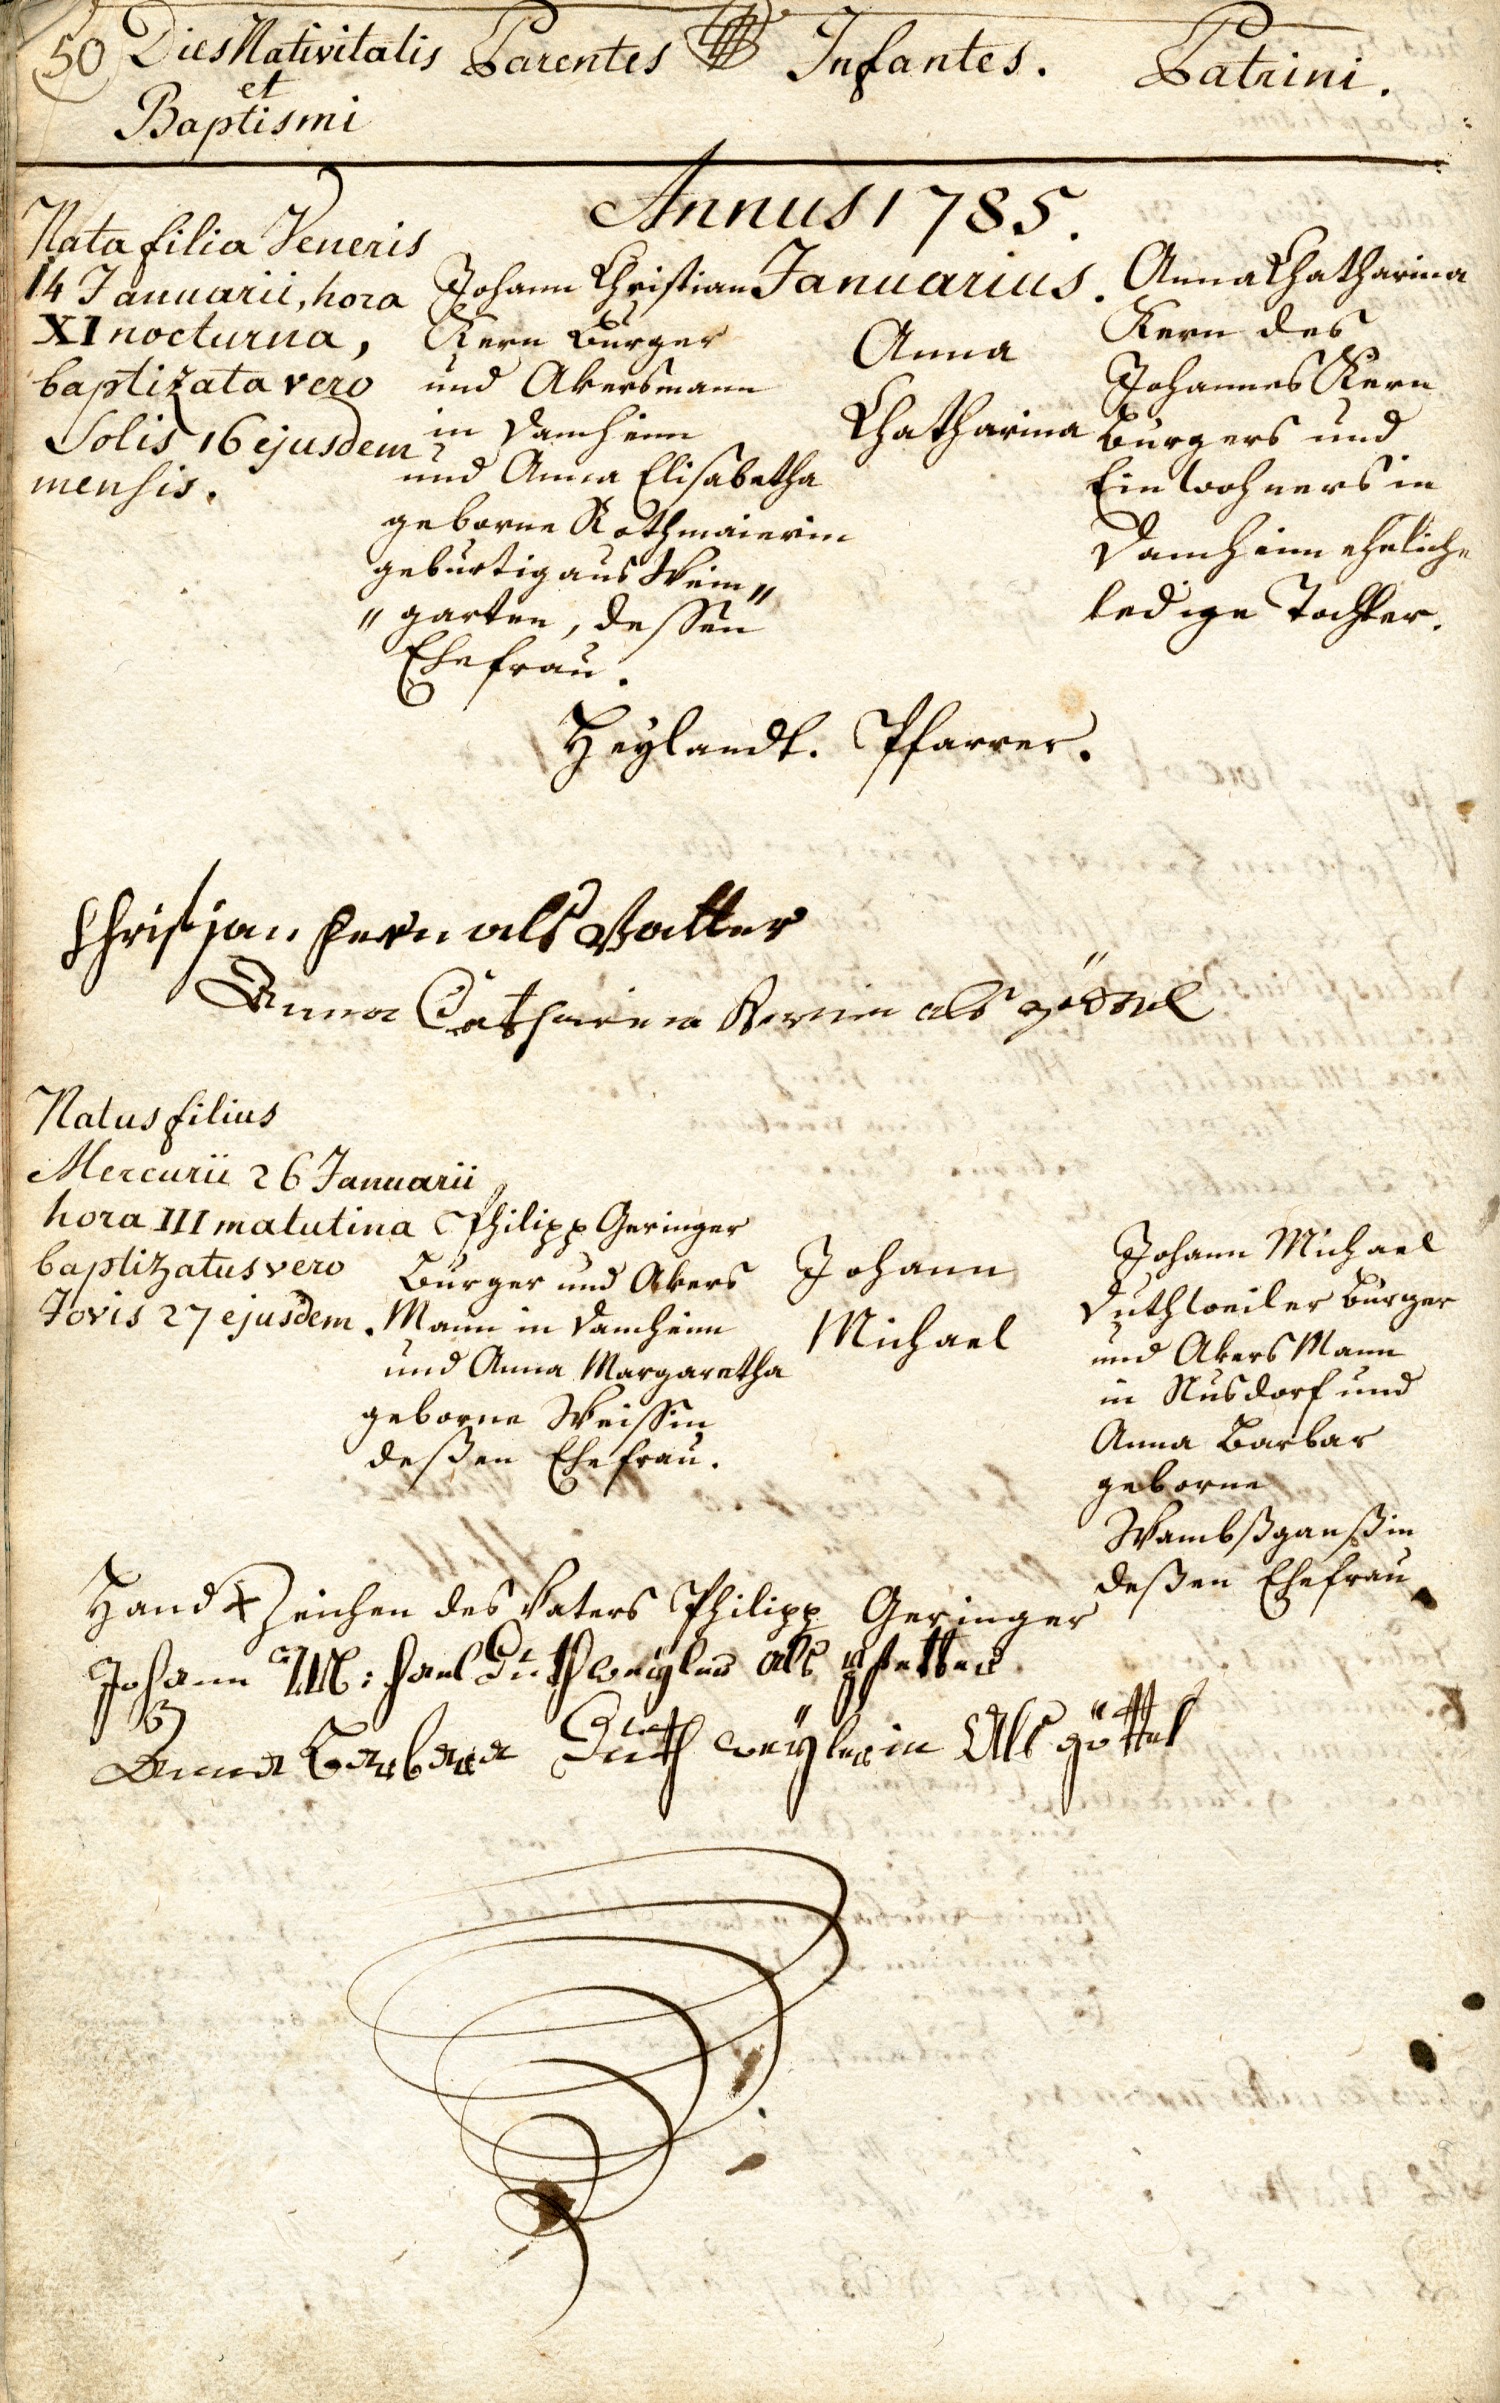 50
Dies Nativitatis
et
Baptismi
Parentes
Infantes.
Patrini.
Annus 1785.
Januarius.
Nata filia Veneris
14 Januarii, hora
XI nocturna,
baptizata vero
Solis 16 ejusdem
mensis.
Johann Christian
Kern Burger
und Akersmann
in Damheim
und Anna Elisabetha
geborne Rothmaierin
gebürtig aus Wein„
„garten, dessen
Ehefrau.
Anna
Chatharina
Anna Chatharina
Kern des
Johannes Kern
Burgers und
Einwohners in
Damheim eheliche
ledige Tochter.
Heylandt. Pfarrer.
Christjan Kern als Vatter
Anna Catharina Kernin als
Natus filius
Mercurii 26 Januarii
hora III matutina
baptizatus vero
Jovis 27 ejusdem.
Philipp Geringer
Burger und Akers
Mann in Damheim
und Anna Margaretha
geborne Weissin
deßen Ehefrau.
Johann
Michael
Johann Michael
Duthweiler Burger
und Akers Mann
in Nusdorf und
Anna Barbar
geborne
Wambßganßin
deßen Ehefrau
Hand + Zeichen des Vaters Philipp Geringer
Johann Michael Duthweyler als pfetter
Anna Barbara Duthweylerin Als göttel